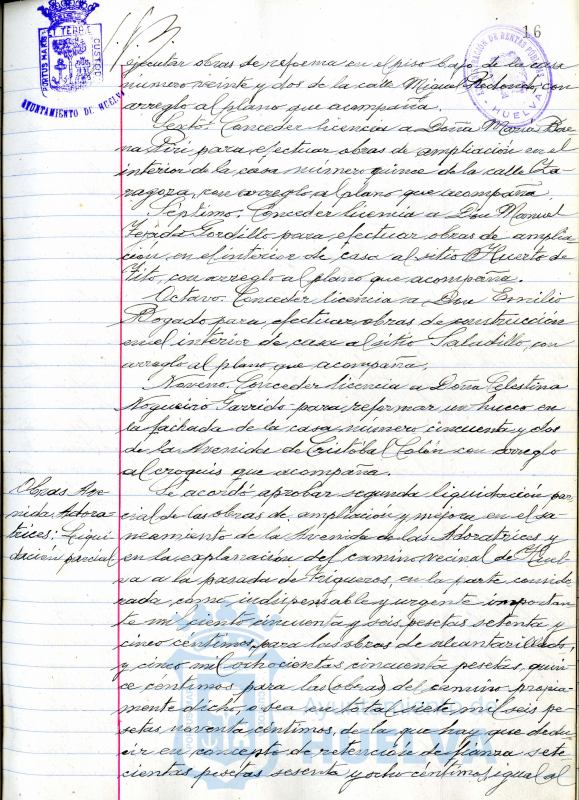 16
PORTUS MARIS ET TERRE CUSTODIA
AYUNTAMIENTO DE HUELVA
ADMINISTRACION DE RENTAS PUBLICAS
HUELVA
ejecutar obras de reforma en el piso bajo de la casa
número veinte y dos de la calle Miguel Redondo, con
arreglo al plano que acompaña.
Sexto. Conceder licencia a Doña Maria Bae
na Piri para efectuar obras de ampliación en el
interior de la casa número quince de la calle Za
ragoza, con arreglo al plano que acompaña.
Séptimo. Conceder licencia a Don Manuel
Tejada Gordillo para efectuar obras de amplia
ción en el interior de casa al sitio Huerto de
Tito, con arreglo al plano que acompaña.
Octavo. Conceder licencia a Don Emilio
Rogado para efectuar obras de construcción
en el interior de casa al sitio Saladillo, con
arreglo al plano que acompaña.
Noveno. Conceder licencia a Doña Celestina
Nogueiro Garrido para reformar un hueco en
la fachada de la casa número cincuenta y dos
de la Avenida de Cristóbal Colón con arreglo
al croquis que acompaña.
Obras Ave
nida Adora-
trices: Liqui
dación parcial
Se acordó aprobar segunda liquidación par
cial de las obras de ampliación y mejora en el sa
neamiento de la Avenida de las Adoratrices y
en la explanación del camino vecinal de Huel
va a la pasada de Trigueros, en la parte conside
rada como indispensable y urgente importan
te mil ciento cincuenta y seis pesetas setenta y
cinco céntimos para las obras de alcantarillado,
y cinco mil ochocientas cincuenta pesetas, quin
ce céntimos para las obras del camino propia
mente dicho, o sea en total siete mil seis pe
setas noventa céntimos, de la que hay que dedu
cir en concepto de retención de fianza sete
cientas pesetas sesenta y ocho céntimos, igual al
Ayuntamiento de
HUELVA